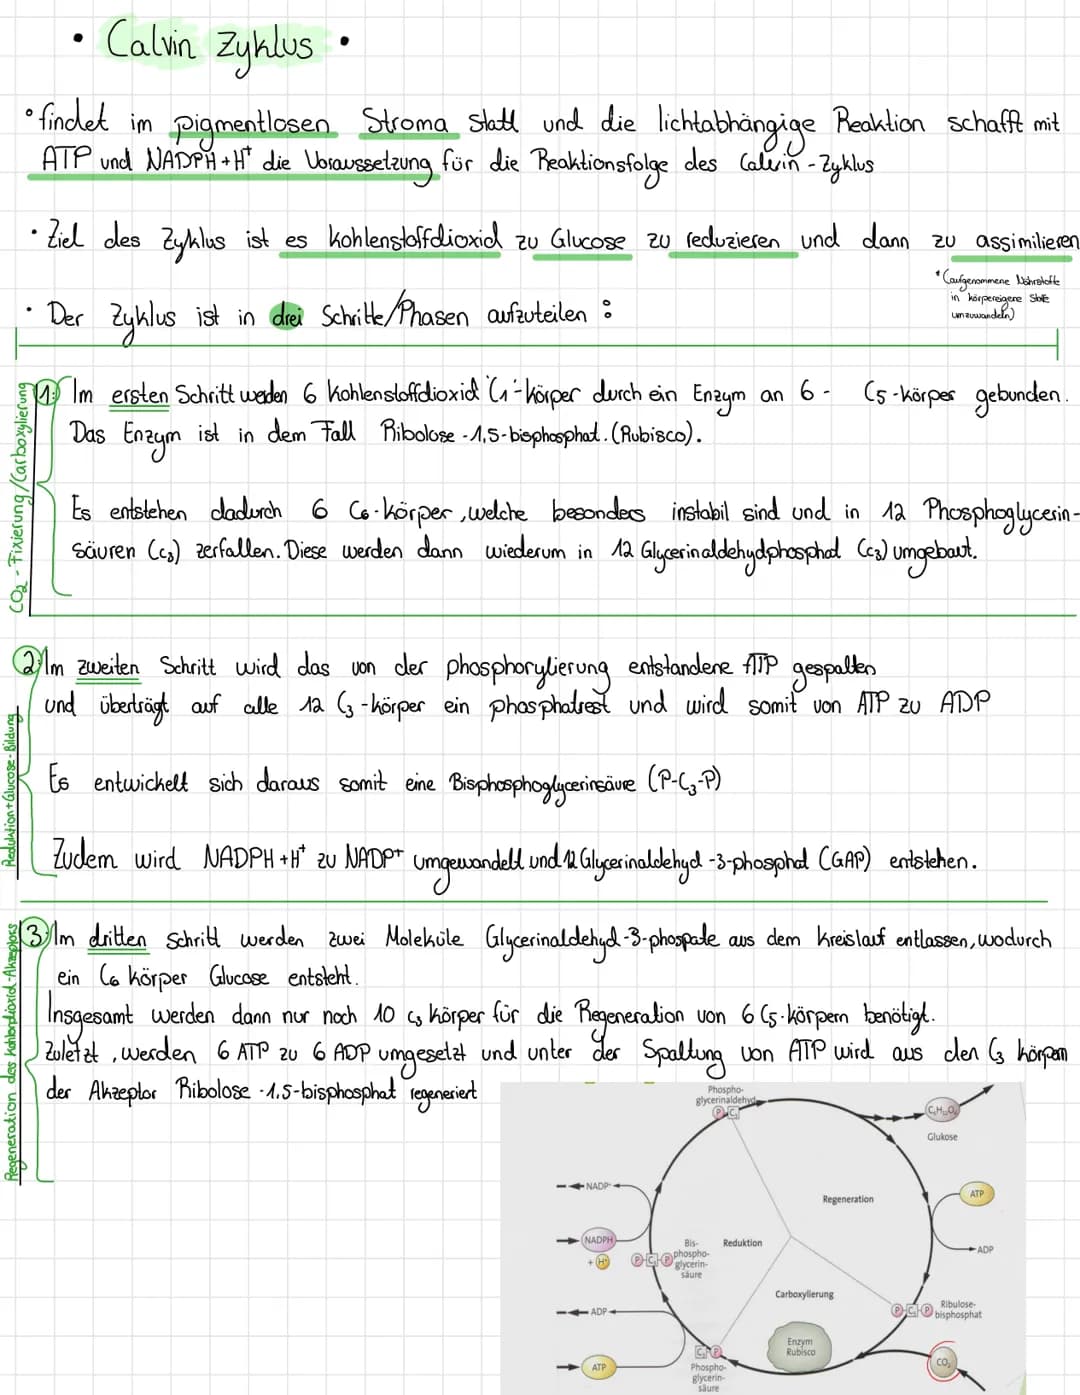 • Calvin Zyklus •
• findet im pigmentlosen Stroma statt und die lichtabhängige Reaktion schafft mit
ATP und NADPH+H⁺ die Voraussetzung für die Reaktionsfolge des Calvin-Zyklus
• Ziel des Zyklus ist es Kohlenstoffdioxid zu Glucose zu reduzieren und dann zu assimilieren
*(aufgenommene Nährstoffe
in körpereigene Stoffe
umzuwandeln)
• Der Zyklus ist in drei Schritte/Phasen aufzuteilen :
CO₂-Fixierung/Carboxylierung
1. Im ersten Schritt werden 6 Kohlenstoffdioxid C₁-Körper durch ein Enzym an 6- C5-körper gebunden.
Das Enzym ist in dem Fall Ribolose-1,5-bisphosphat.(Rubisco).
Es entstehen dadurch 6 C₆-körper, welche besonders instabil sind und in 12 Phosphoglycerin-
säuren (C₃) zerfallen. Diese werden dann wiederum in 12 Glycerinaldehydphosphat (C₃) umgebaut.
Reduktion+Glucose-Bildung
2. Im zweiten Schritt wird das von der phosphorylierung entstandene ATP gespalten
und überträgt auf alle 12 C₃-körper ein phosphatrest und wird somit von ATP zu ADP
Es entwickelt sich daraus somit eine Bisphosphoglycerinsäure (P-C₃-P)
Zudem wird NADPH+H⁺ zu NADP⁺ umgewandelt und 12 Glycerinaldehyd-3-phosphat (GAP) entstehen.
Regeneration des Kohlendioxid-Akzeptors
3. Im dritten Schritt werden zwei Moleküle Glycerinaldehyd-3-phospate aus dem Kreislauf entlassen, wodurch
ein C₆ körper Glucose entsteht.
Insgesamt werden dann nur noch 10 C₃ körper für die Regeneration von 6 C5-körpern benötigt.
Zuletzt, werden 6 ATP zu 6 ADP umgesetzt und unter der Spaltung von ATP wird aus den C₃ körpern
der Akzeptor Ribolose-1,5-bisphosphat regeneriert
Phospho-
glycerinaldehyd
P C₃
C₆H₁₂O₆
Glukose
NADP⁺
Regeneration
ATP
NADPH
+ H⁺
P C₃ P
Bis-
phospho-
glycerin-
säure
Reduktion
ADP
Carboxylierung
ADP
P C₅ P
Ribulose-
bisphosphat
Enzym
Rubisco
ATP
C₃ P
Phospho-
glycerin-
säure
CO₂